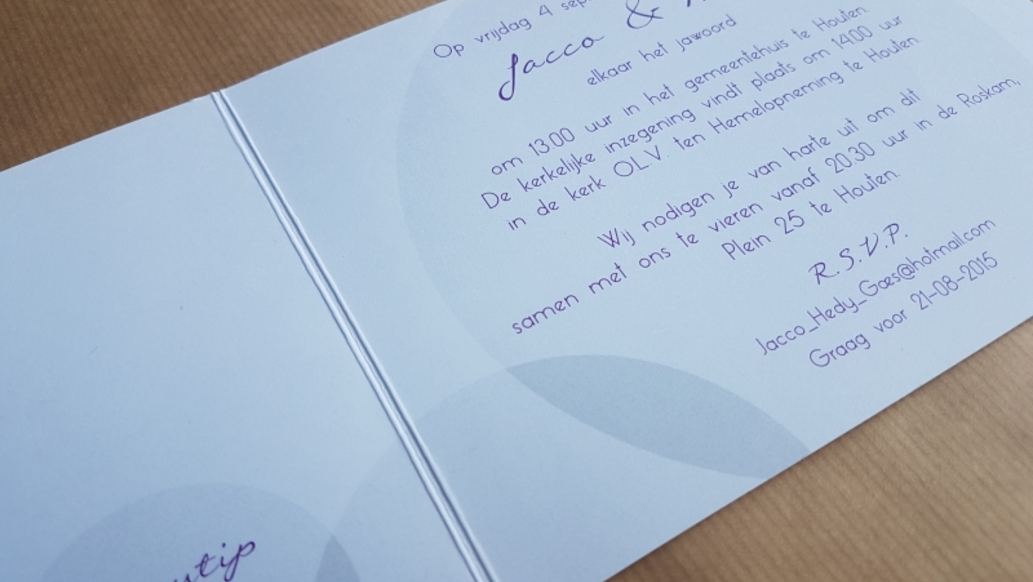 Op vrijdag 4 sep
Jacco &
elkaar het jawoord
om 13.00 uur in het gemeentehuis te Houten.
De kerkelijke inzegening vindt plaats om 14.00 uur
in de kerk O.L.V. ten Hemelopneming te Houten
Wij nodigen je van harte uit om dit
samen met ons te vieren vanaf 20.30 uur in de Roskam,
Plein 25 te Houten.
R.S.V.P.
Jacco_Hedy_Goes@hotmail.com
Graag voor 21-08-2015
utip